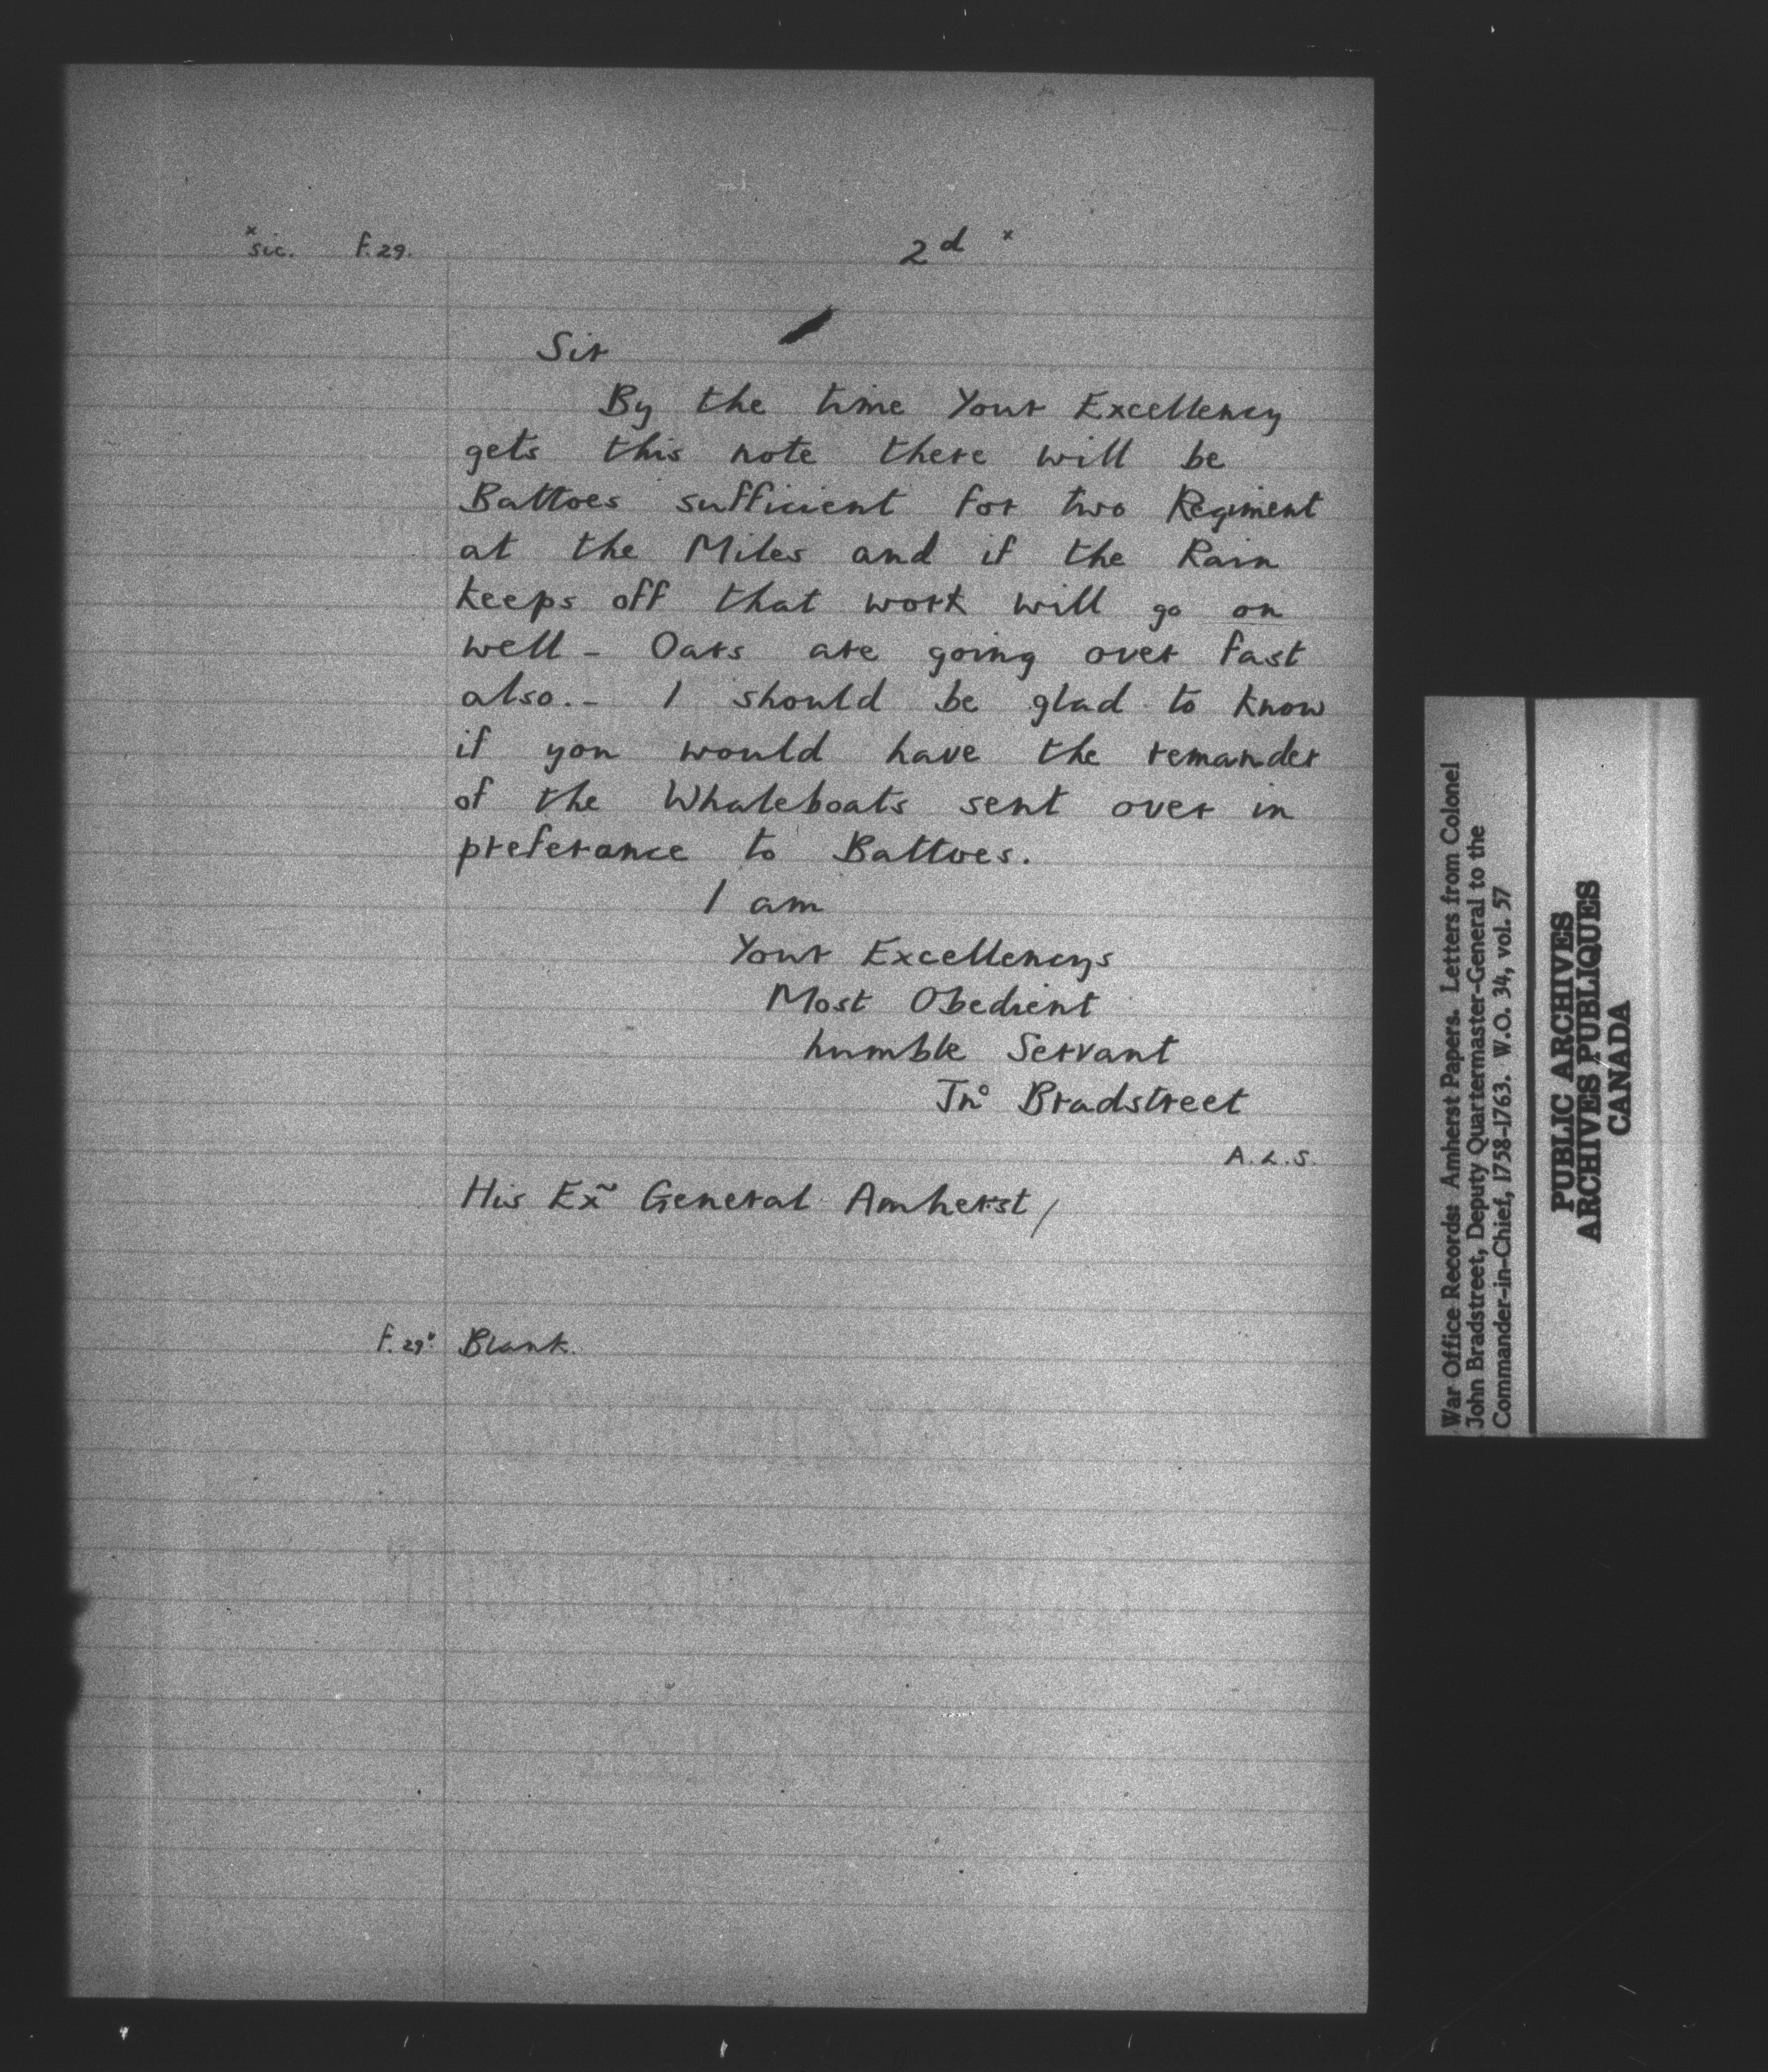 ×sic. F. 29. 2d ×
Sir
By the time Your Excellency
gets this note there will be
Battoes sufficient for two Regiment
at the Miles and if the Rain
keeps off that work will go on
well - Oars are going over fast
also. - I should be glad to know
if you would have the remander
of the Whaleboats sent over in
preferance to Battoes.
I am
Your Excellencys
Most Obedient
humble Servant
Jno Bradstreet
A.L.S.
His Ex~ General Amherst/
F. 29v Blank.
War Office Records: Amherst Papers. Letters from Colonel
John Bradstreet, Deputy Quartermaster-General to the
Commander-in-Chief, 1758-1763. W.O. 34, vol. 57
PUBLIC ARCHIVES
ARCHIVES PUBLIQUES
CANADA